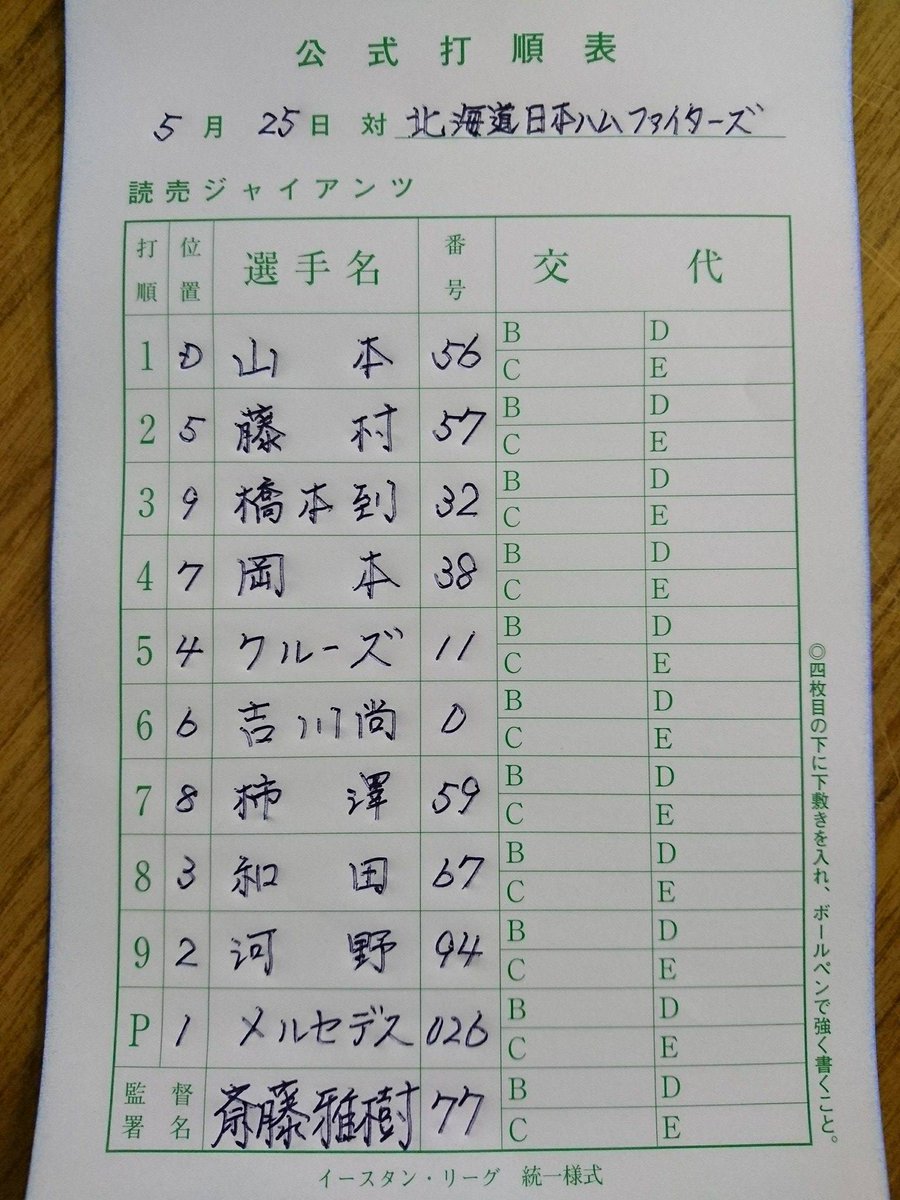 公式打順表
5月25日 対 北海道日本ハムファイターズ
読売ジャイアンツ
打順 位置 選手名 番号 交代
1 D 山本 56 B D
C E
2 5 藤村 57 B D
C E
3 9 橋本到 32 B D
C E
4 7 岡本 38 B D
C E
5 4 クルーズ 11 B D
C E
6 6 吉川尚 0 B D
C E
7 8 柿澤 59 B D
C E
8 3 和田 67 B D
C E
9 2 河野 94 B D
C E
P 1 メルセデス 026 B D
C E
監督署名 斎藤雅樹 77 B D
C E
イースタン・リーグ 統一様式
◎四枚目の下に下敷きを入れ、ボールペンで強く書くこと。